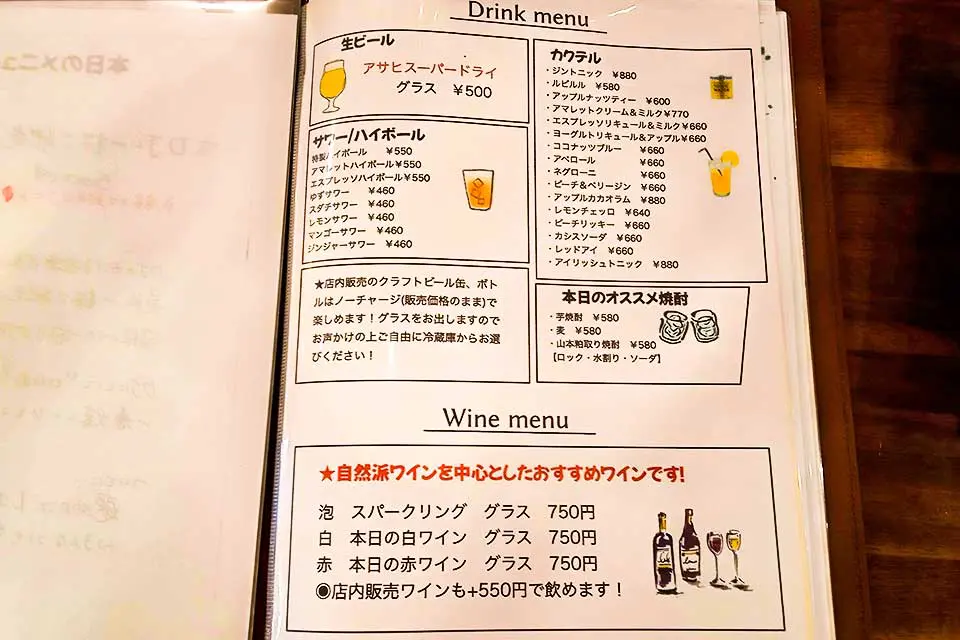 Drink menu
生ビール
アサヒスーパードライ
グラス ¥500
サワー/ハイボール
特製ハイボール ¥550
アマレットハイボール¥550
エスプレッソハイボール¥550
ゆずサワー ¥460
スダチサワー ¥460
レモンサワー ¥460
マンゴーサワー ¥460
ジンジャーサワー ¥460
★店内販売のクラフトビール缶、ボト
ルはノーチャージ(販売価格のまま)で
楽しめます!グラスをお出しますので
お声かけの上ご自由に冷蔵庫からお選
びください!
カクテル
・ジントニック ¥880
・ルビルル ¥580
・アップルナッツティー ¥600
・アマレットクリーム&ミルク¥770
・エスプレッソリキュール&ミルク¥660
・ヨーグルトリキュール&アップル¥660
・ココナッツブルー ¥660
・アペロール ¥660
・ネグローニ ¥660
・ピーチ&ベリージン ¥660
・アップルカカオラム ¥880
・レモンチェッロ ¥640
・ピーチリッキー ¥660
・カシスソーダ ¥660
・レッドアイ ¥660
・アイリッシュトニック ¥880
本日のオススメ焼酎
・芋焼酎 ¥580
・麦 ¥580
・山本粕取り焼酎 ¥580
【ロック・水割り・ソーダ】
Wine menu
★自然派ワインを中心としたおすすめワインです!
泡 スパークリング グラス 750円
白 本日の白ワイン グラス 750円
赤 本日の赤ワイン グラス 750円
◉店内販売ワインも+550円で飲めます!
本日のメニュ